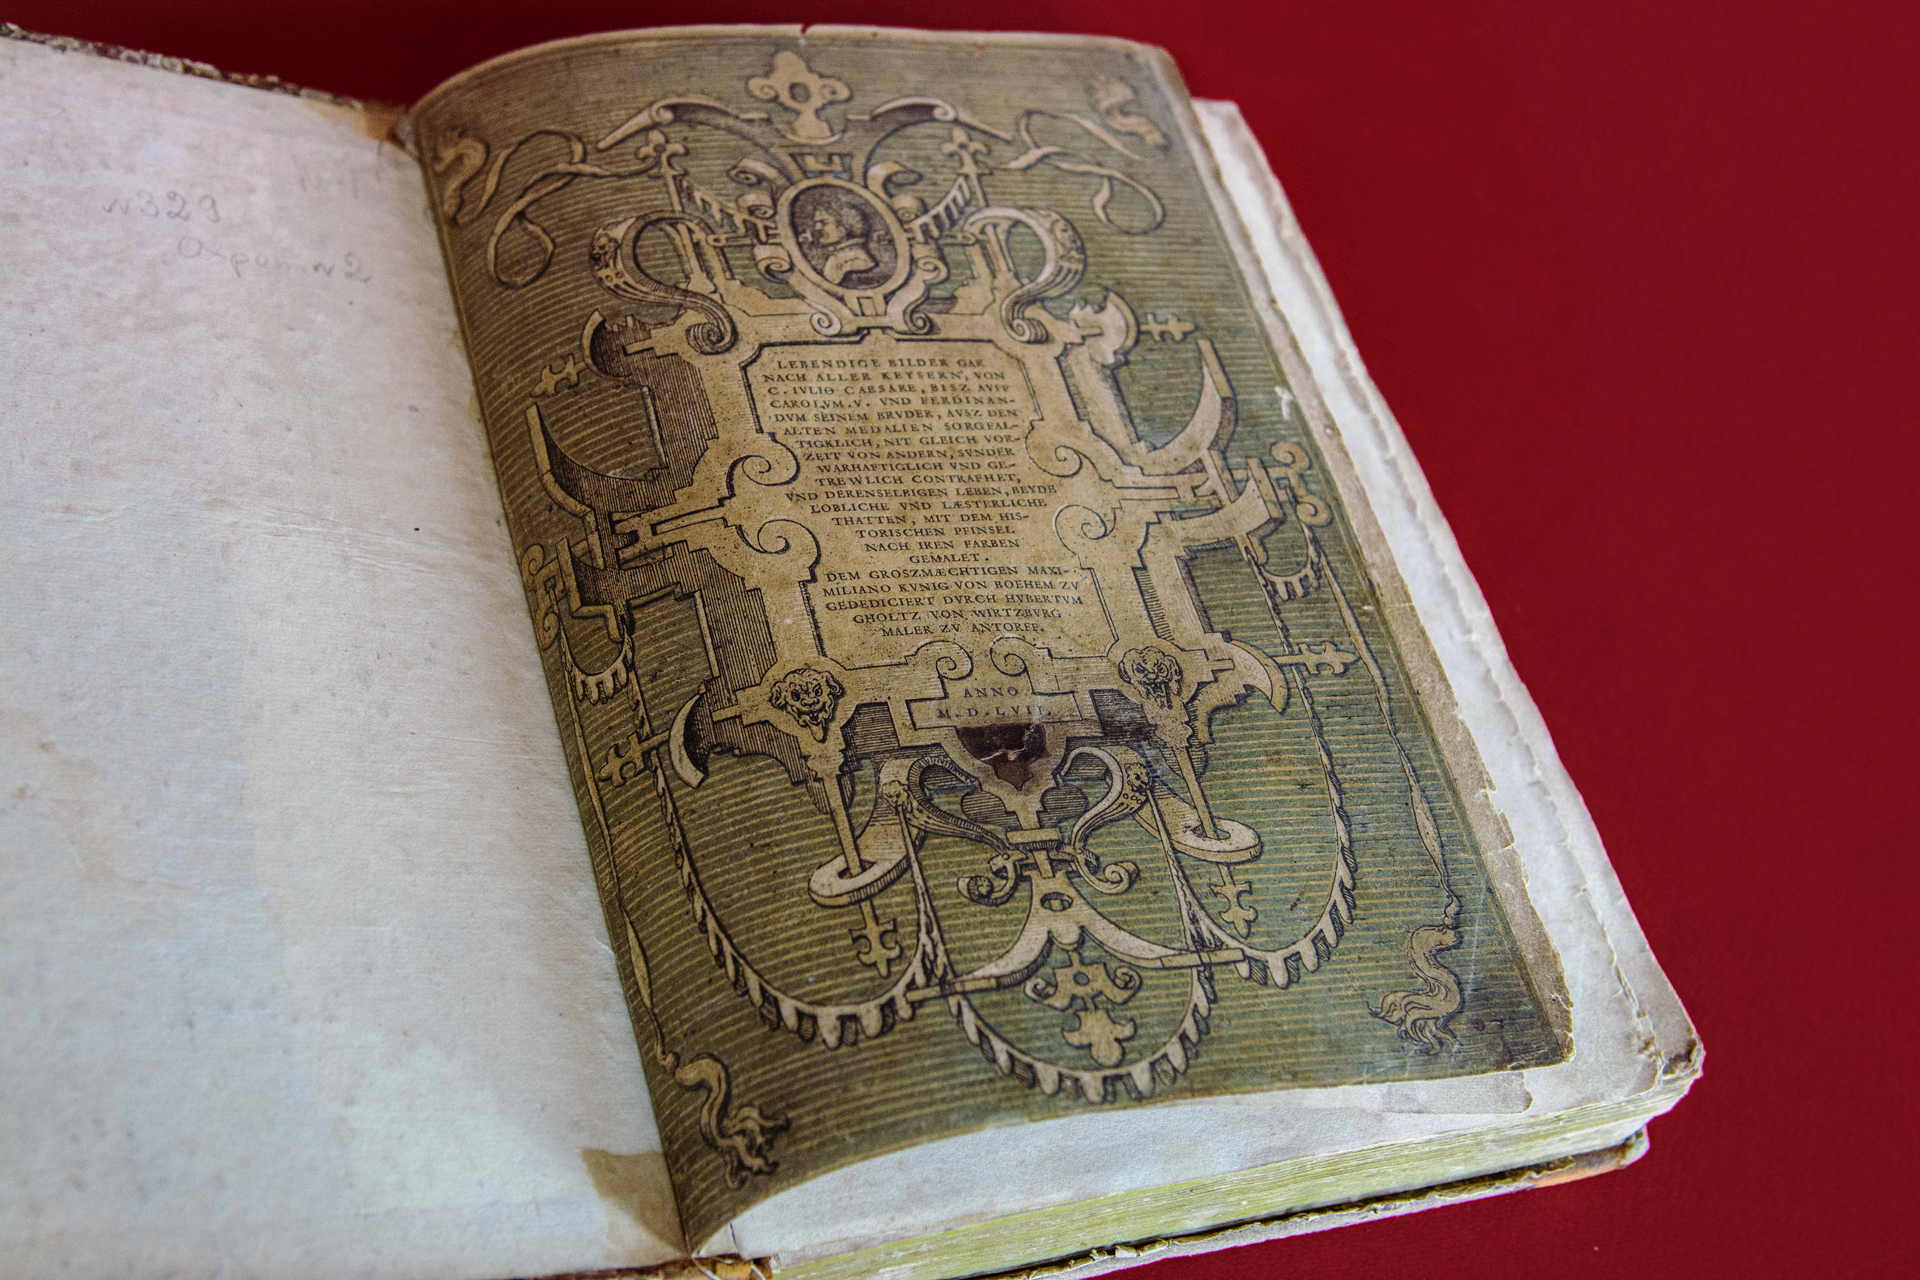 N329
N2
LEBENDIGE BILDER GAR
NACH ALLER KEYSERN, VON
C. IVLIO CAESARE, BISZ AVFF
CAROLVM.V. VND FERDINAN-
DVM SEINEM BRVDER, AVSZ DEN
ALTEN MEDALIEN SORGFAL-
TIGKLICH, NIT GLEICH VOR-
ZEIT VON ANDERN, SVNDER
WARHAFTIGLICH VND GE-
TREWLICH CONTRAFHET,
VND DERENSELBIGEN LEBEN, BEYDE
LOBLICHE VND LÆSTERLICHE
THATTEN, MIT DEM HIS-
TORISCHEN PEINSEL
NACH IREN FARBEN
GEMALET.
DEM GROSZMÆCHTIGEN MAXI-
MILIANO KVNIG VON BOEHEM ZV
GEDEDICIERT DVRCH HVBERTVM
GHOLTZ VON WIRTZBVRG
MALER ZV ANTORFF.
ANNO
M.D.LVII.